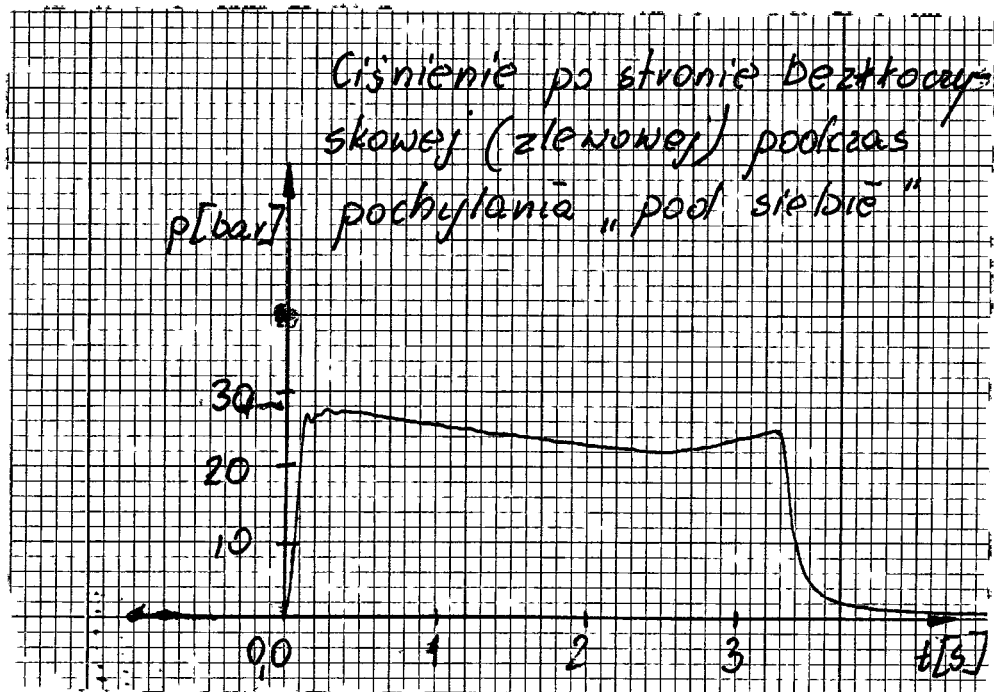 Ciśnienie po stronie beztłoczy-
skowej (zlewowej) podczas
pochylania „pod siebie"
p[bar]
30
20
10
0,0 1 2 3 t[s]